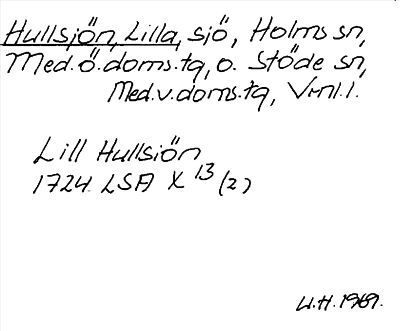 Hullsjön, Lilla, sjö, Holms sn,
Med.ö.doms.tg, o. Stöde sn,
Med.v.doms.tg, Vrnl.l.
Lill Hullsiön
1724. LSA X 13 (2)
U.H. 1969.